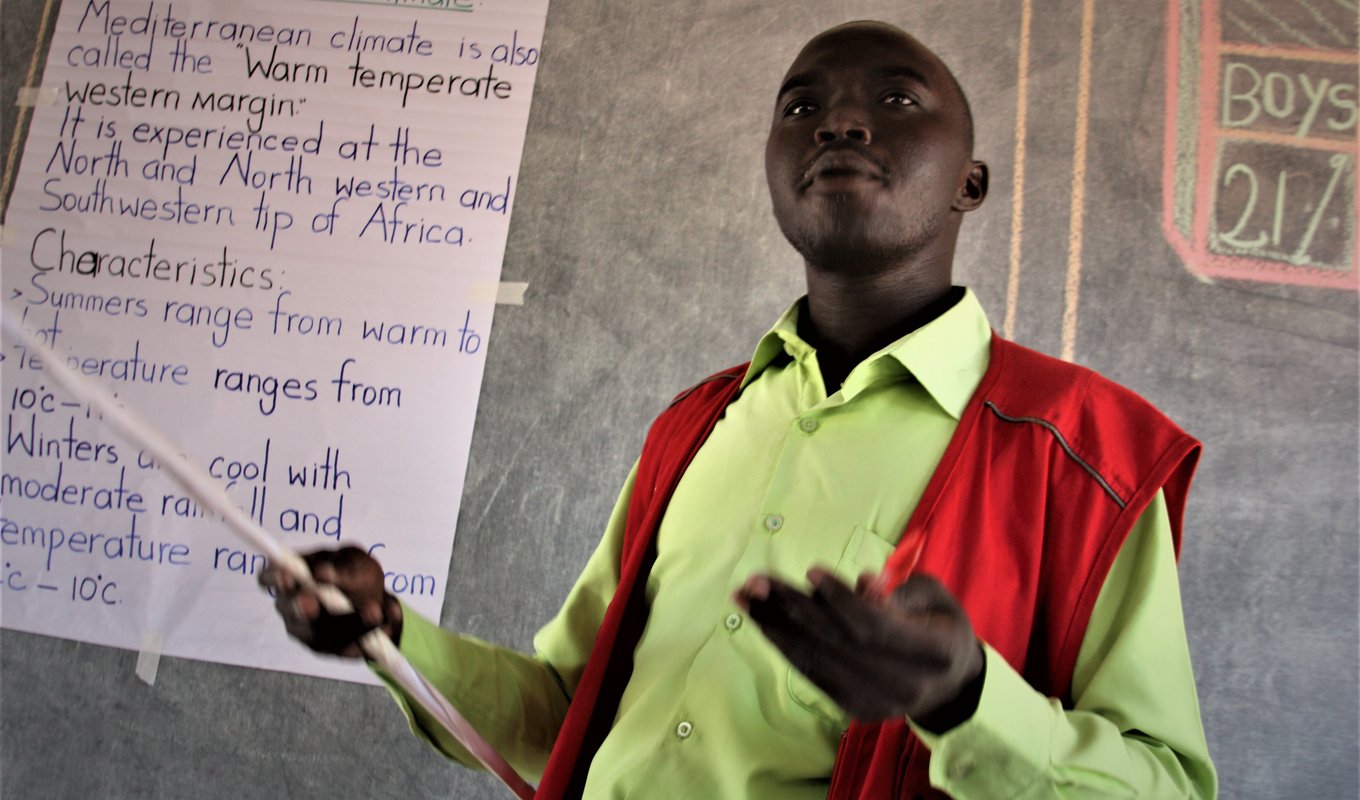 Mediterranean climate is also
called the "Warm temperate
western Margin."
It is experienced at the
North and North western and
Southwestern tip of Africa.
Characteristics:
> Summers range from warm to
hot
> Temperature ranges from
10°c –
Winters are cool with
moderate rainfall and
temperature ranges from
°c – 10°c.
BOYS
21%